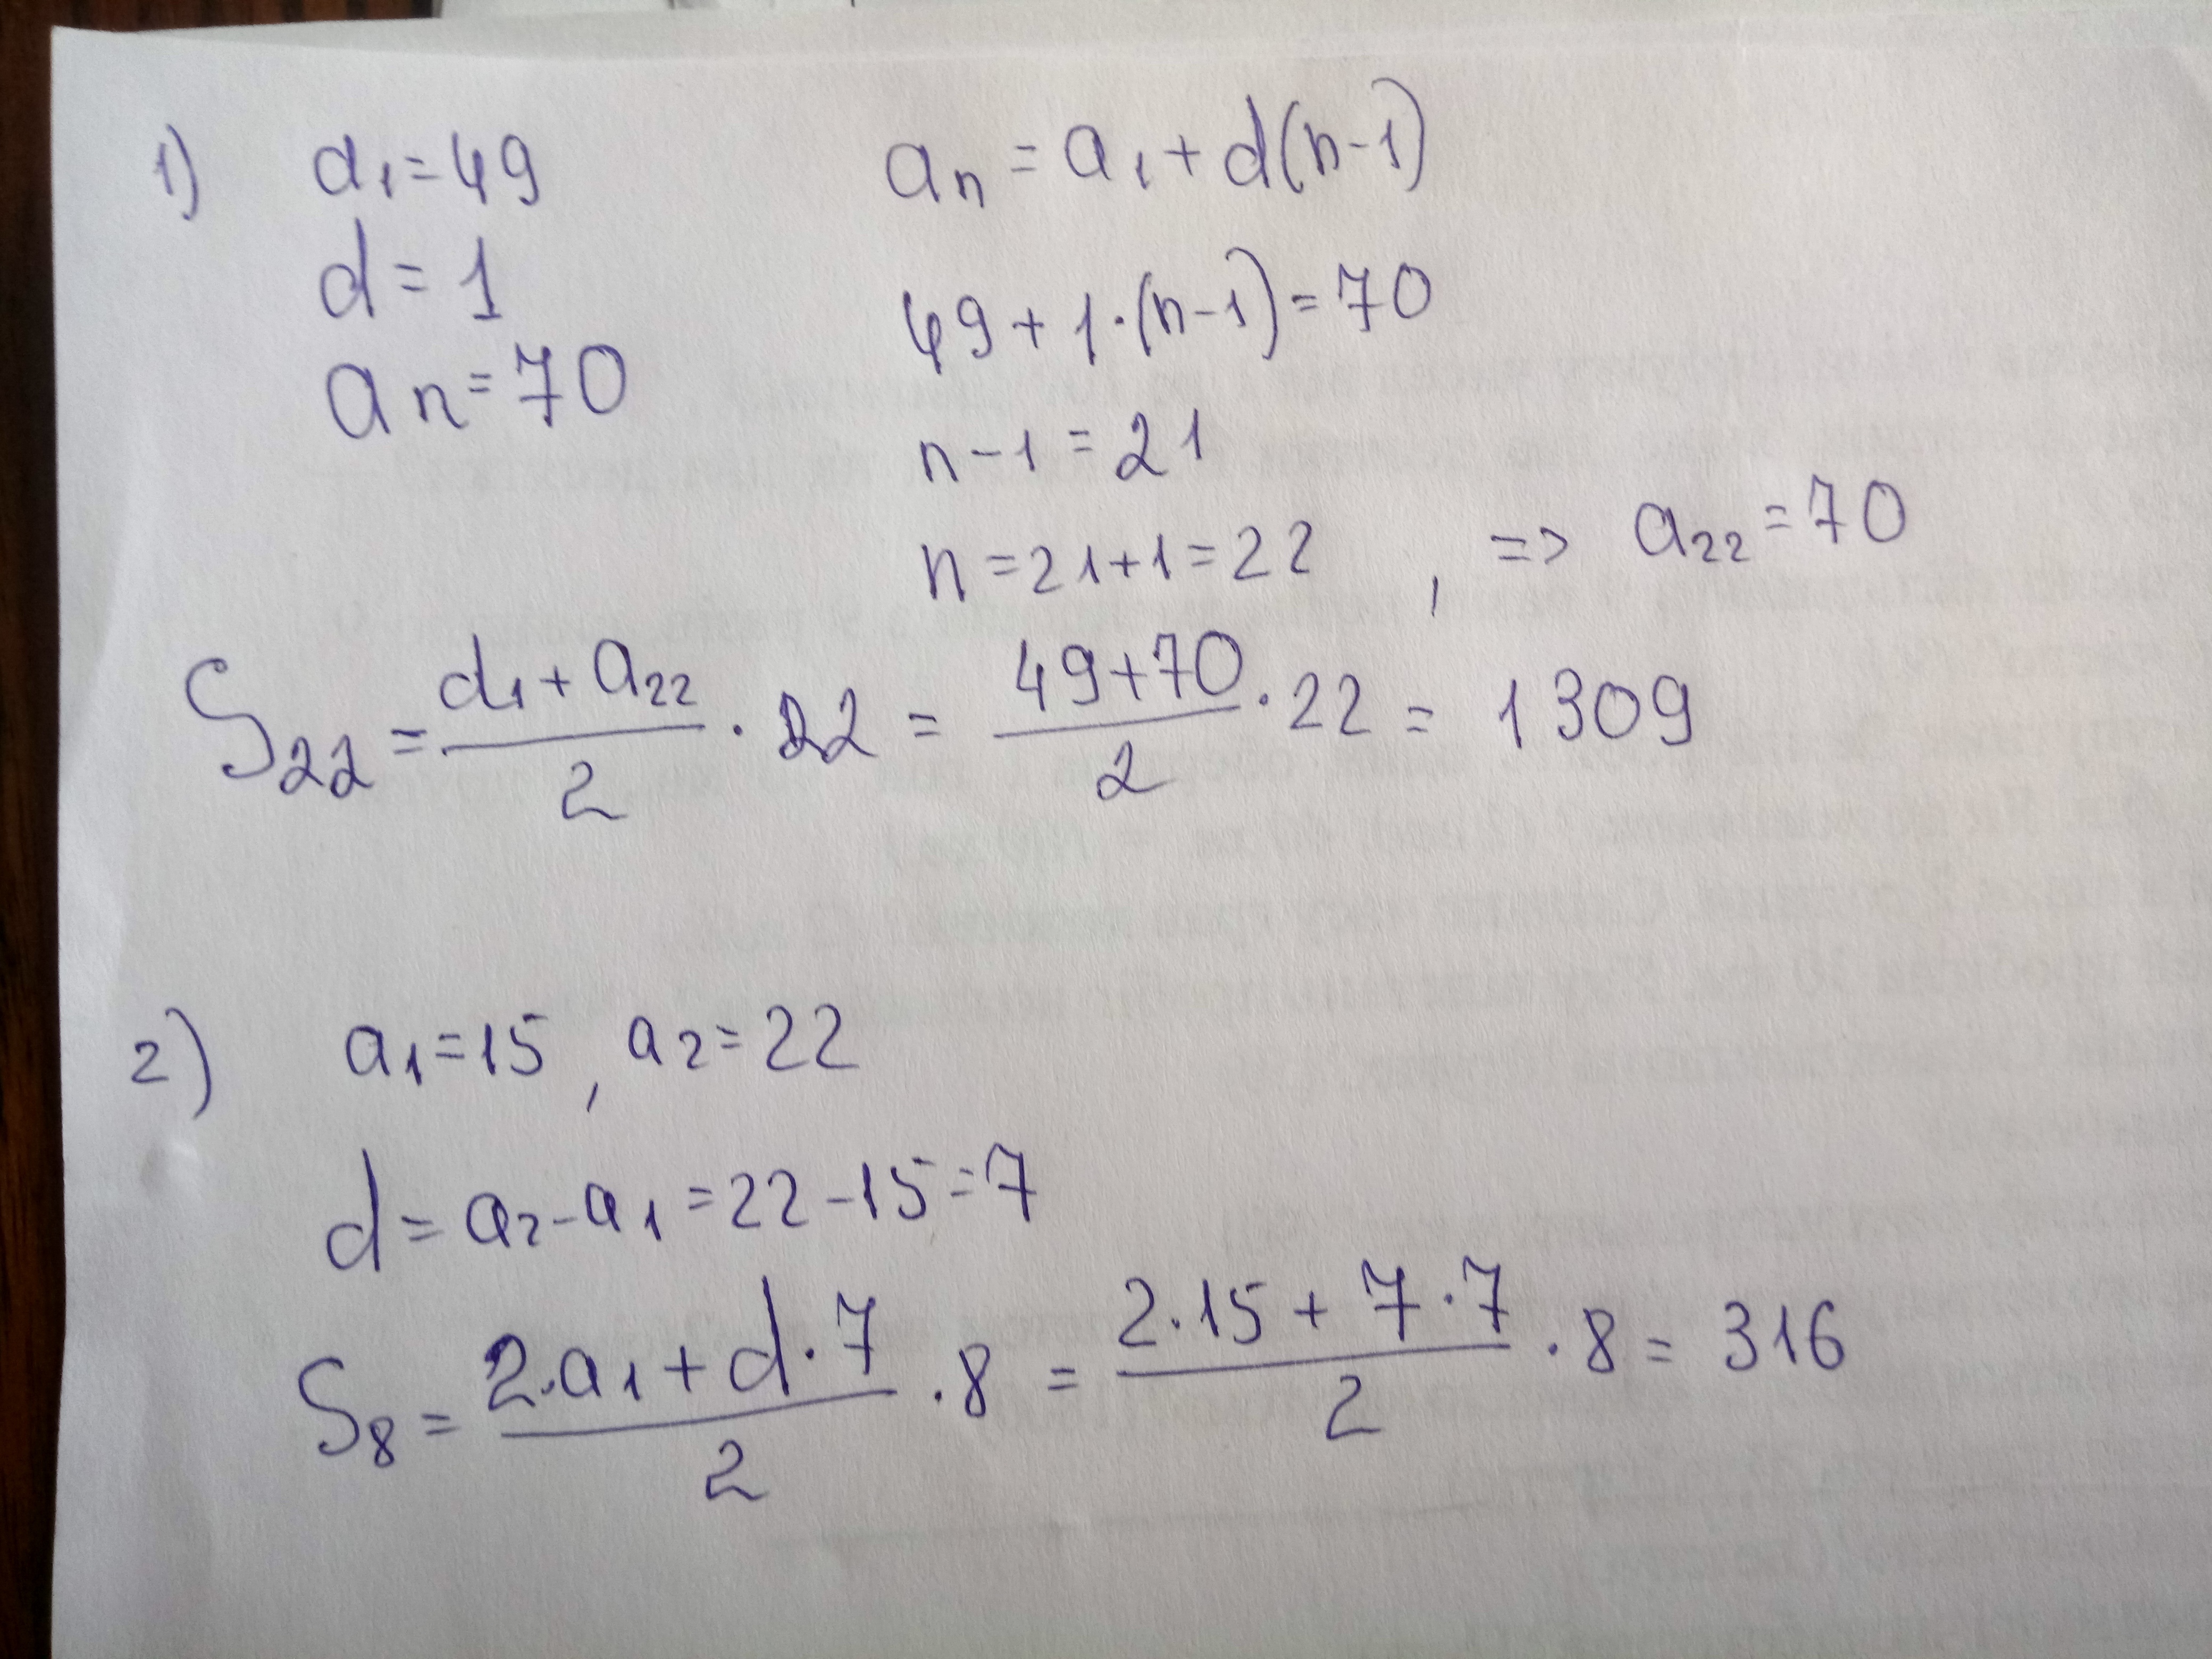 1) a₁=49
d=1
aₙ=70
aₙ=a₁+d(n-1)
49+1·(n-1)=70
n-1=21
n=21+1=22, => a₂₂=70
S₂₂=(a₁+a₂₂)/2·22=(49+70)/2·22=1309
2) a₁=15, a₂=22
d=a₂-a₁=22-15=7
S₈=(2·a₁+d·7)/2·8=(2·15+7·7)/2·8=316